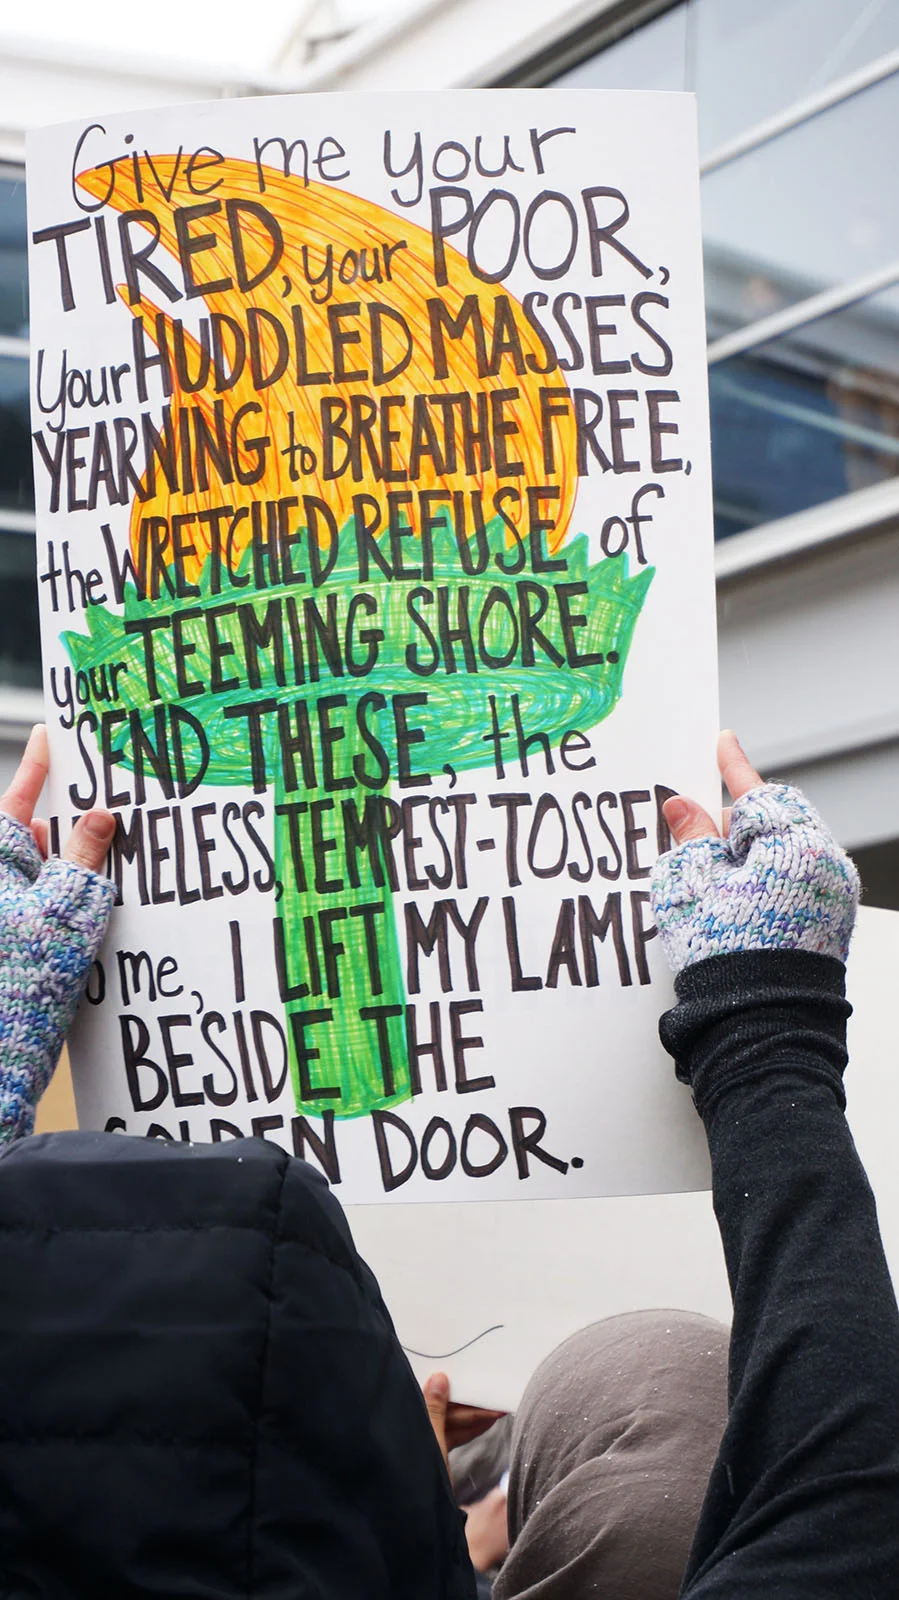 Give me your
TIRED, your POOR,
Your HUDDLED MASSES
YEARNING to BREATHE FREE,
the WRETCHED REFUSE of
your TEEMING SHORE.
SEND THESE, the
HOMELESS, TEMPEST-TOSSED
to me, I LIFT MY LAMP
BESIDE THE
GOLDEN DOOR.